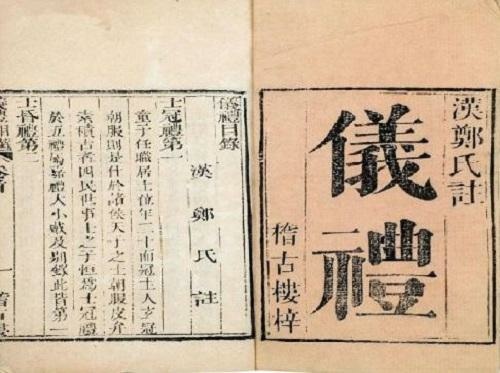 漢鄭氏註
儀禮
稽古樓梓
儀禮目錄
漢鄭氏註
士冠禮第一
童子任職居士位年二十而冠主人玄冠
朝服則是仕於諸侯天子之士朝服皮弁
素積古者四民世事士之子恒爲士冠禮
於五禮屬嘉禮大小戴及別錄此皆第一
士昏禮第二